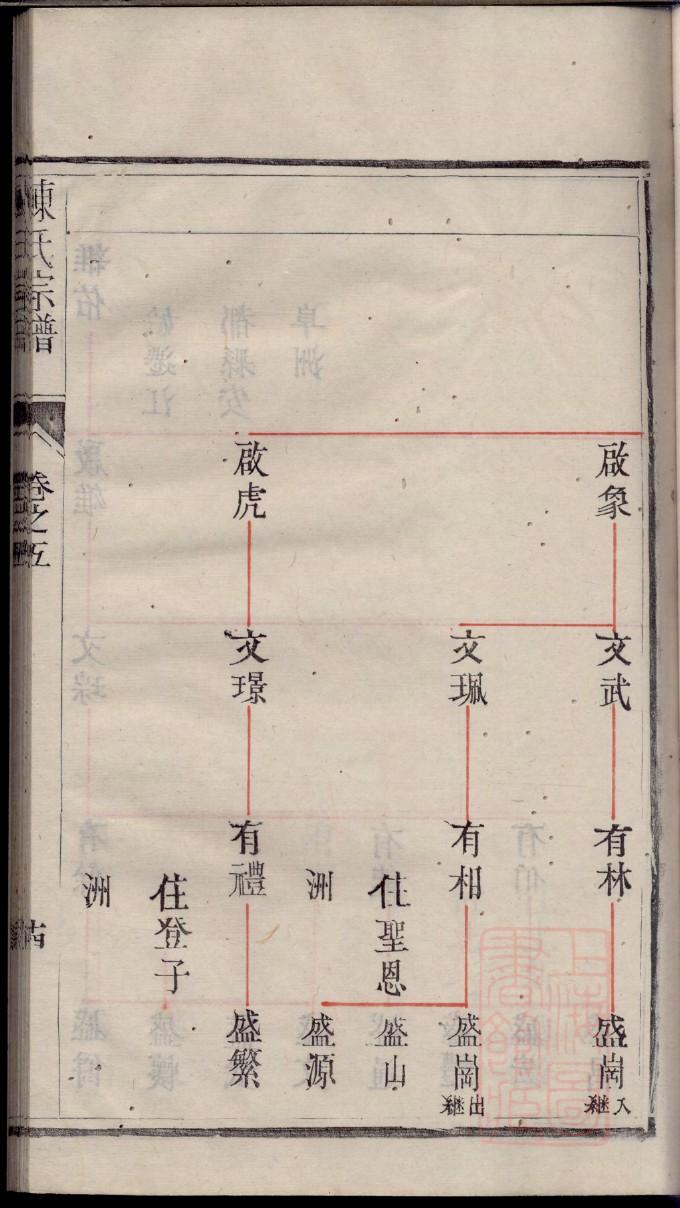 啟象
文武
有林
盛崗
入継
文珮
有相
盛崗
出継
住聖恩
盛山
洲
盛源
啟虎
文璟
有禮
盛繁
住登子
洲
陳氏宗譜
卷之五